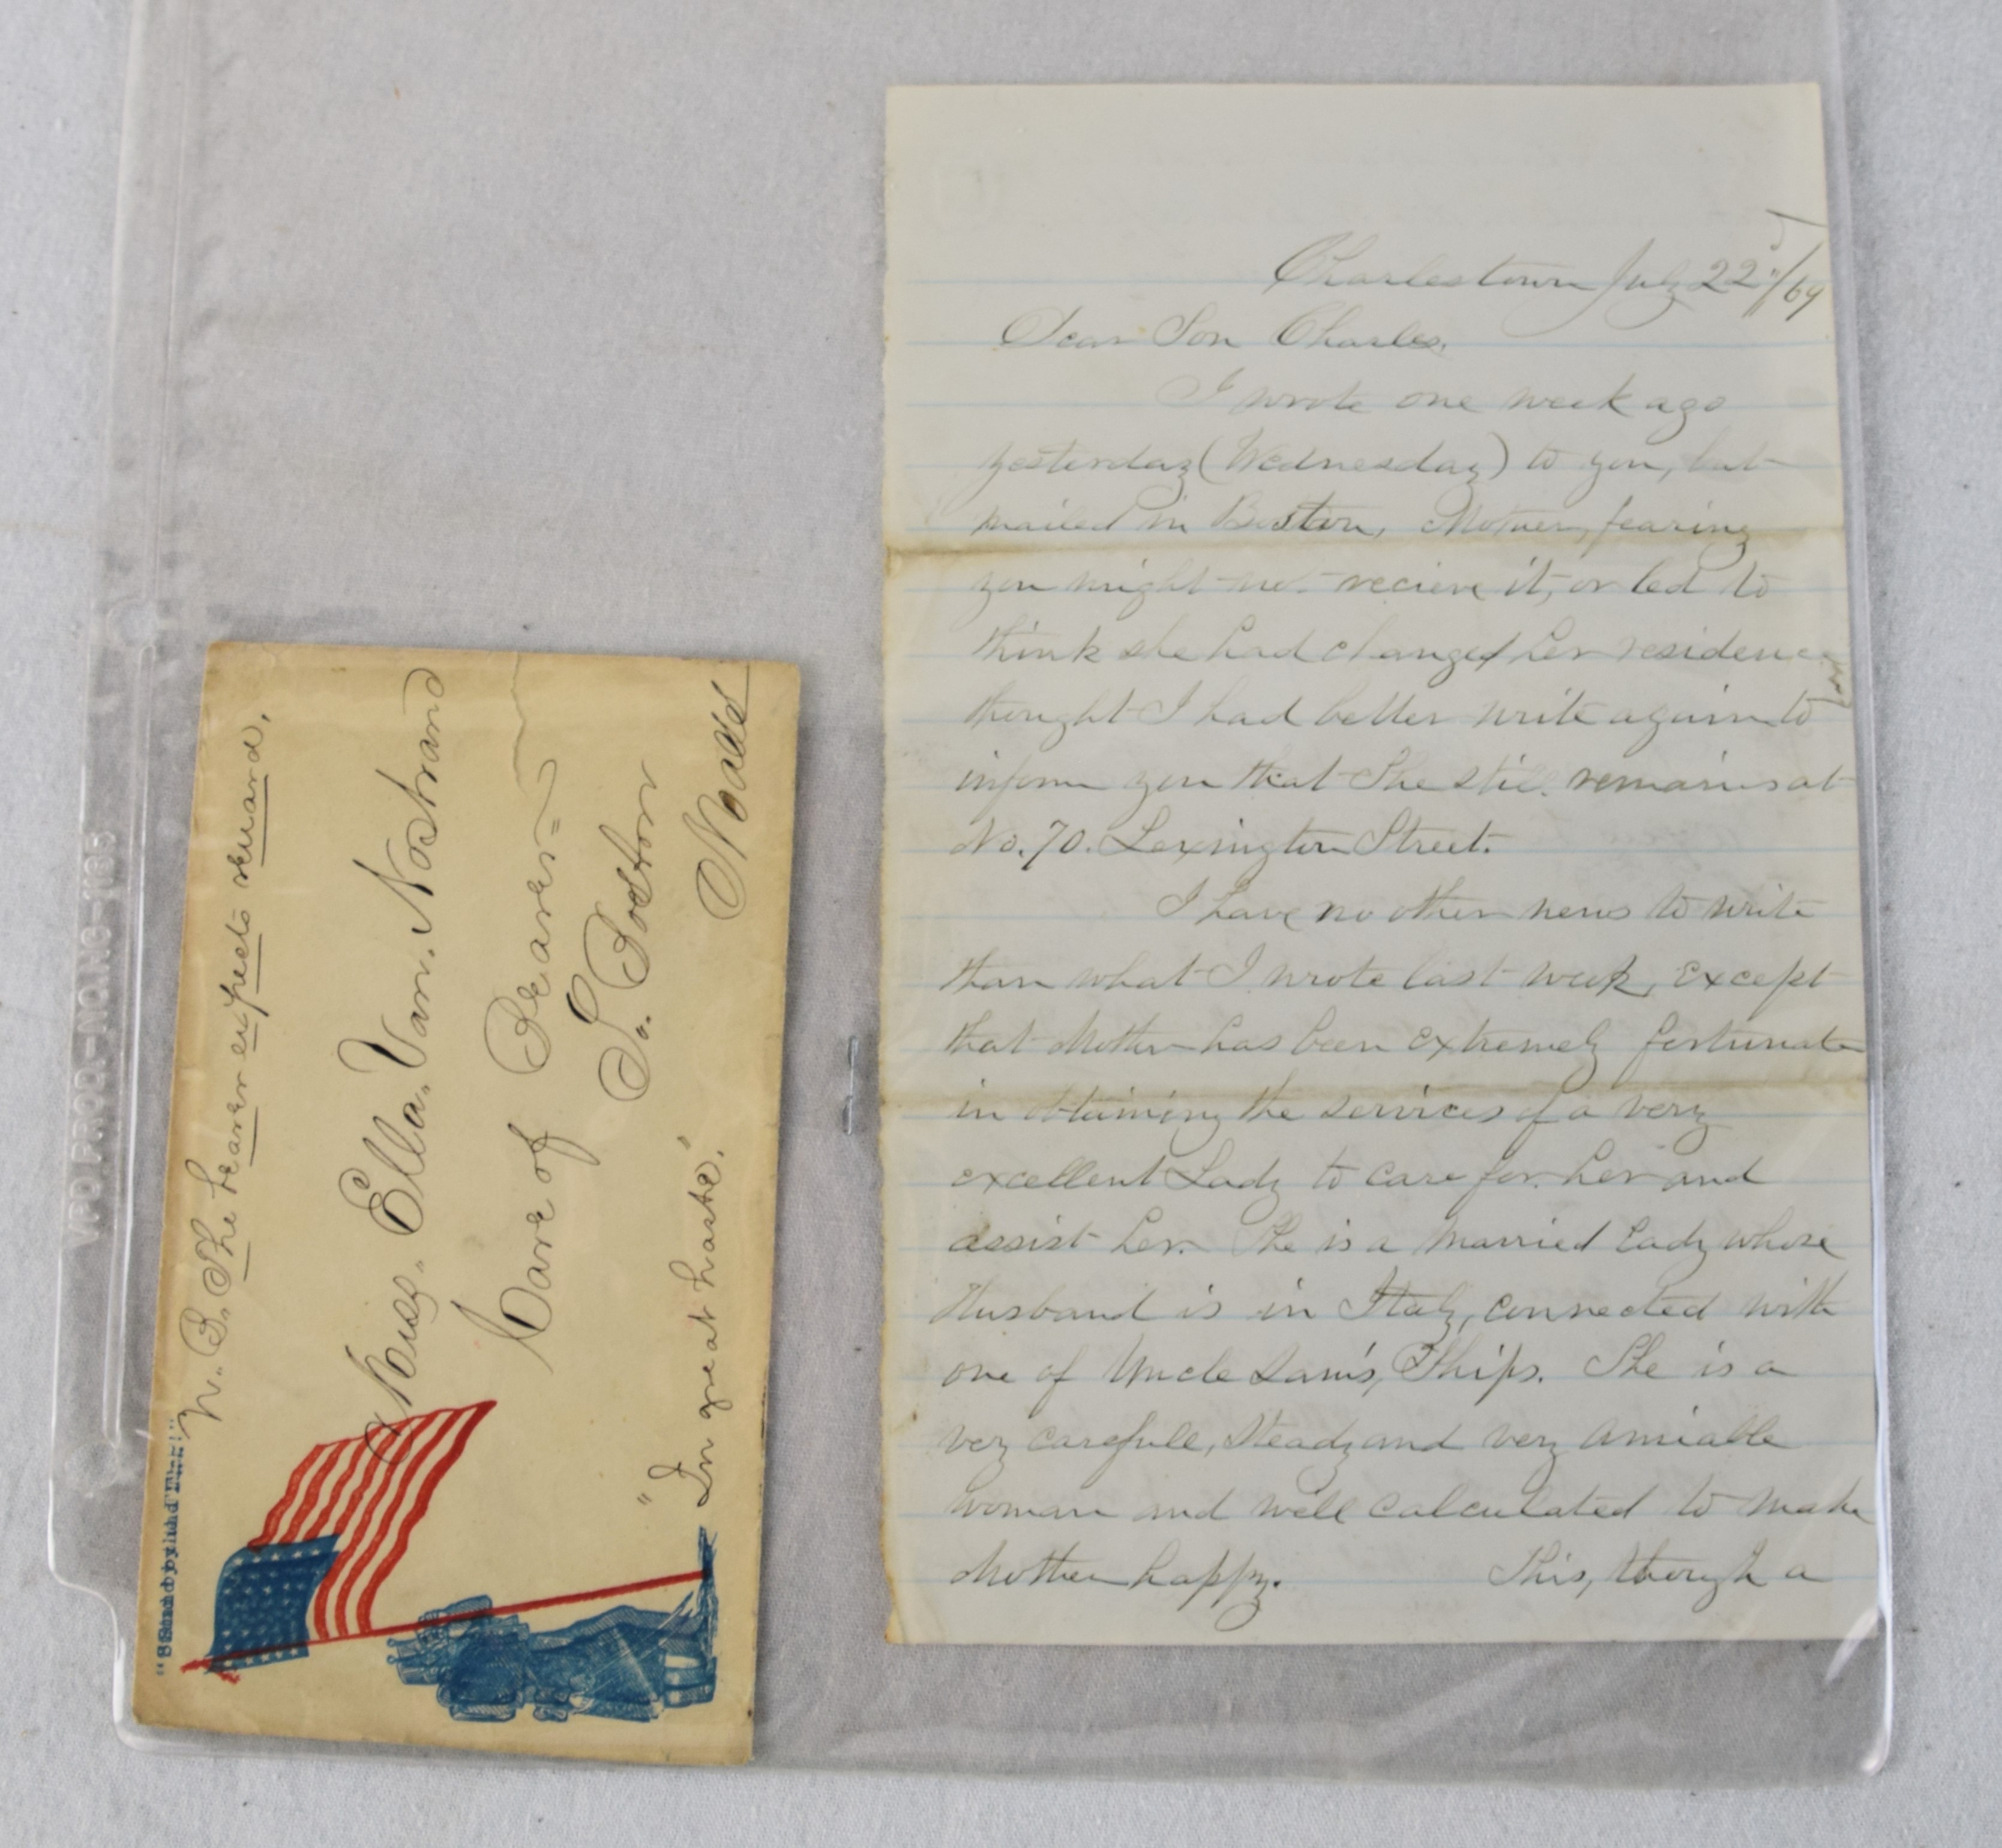 "Stand by the Flag!"
N. B. The bearer expects reward.
Miss. Ella. Van. Nostrand
Care of Bearer=
So. Boston
Mass
"In great haste."
VPD PRODA-NO.NG-1185
Charlestown July 22d/69
Dear Son Charles.
I wrote one week ago
yesterday (Wednesday) to you, but
mailed in Boston, Mother, fearing
you might not recieve it, or led to
think she had changed her residence
thought I had better write again to
inform you that She still remains at
No. 70. Lexington Street.
I have no other news to write
than what I wrote last week, except
that Mother has been extremely fortunate
in obtaining the services of a very
excellent Lady to care for her and
assist her. She is a married Lady whose
Husband is in Italy, connected with
one of Uncle Sam's, Ships. She is a
very carefull, Steady and very amiable
woman and well calculated to make
Mother happy. This, though a